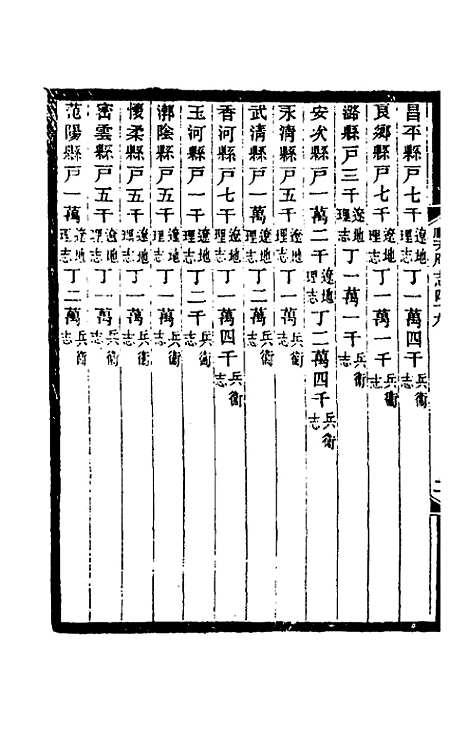 昌平縣戸七千遼地理志丁一萬四千兵衞志
良鄉縣戸七千遼地理志丁一萬一千兵衞志
潞縣戸三千遼地理志丁一萬一千兵衞志
安次縣戸一萬二千遼地理志丁二萬四千兵衞志
永清縣戸五千遼地理志丁一萬兵衞志
武清縣戸一萬遼地理志丁二萬兵衞志
香河縣戸七千遼地理志丁一萬四千兵衞志
玉河縣戸一千遼地理志丁二千兵衞志
漷陰縣戸五千遼地理志丁一萬兵衞志
懷柔縣戸五千遼地理志丁一萬兵衞志
密雲縣戸五千遼地理志丁一萬兵衞志
范陽縣戸一萬遼地理志丁二萬兵衞志
順天府志四十九
二